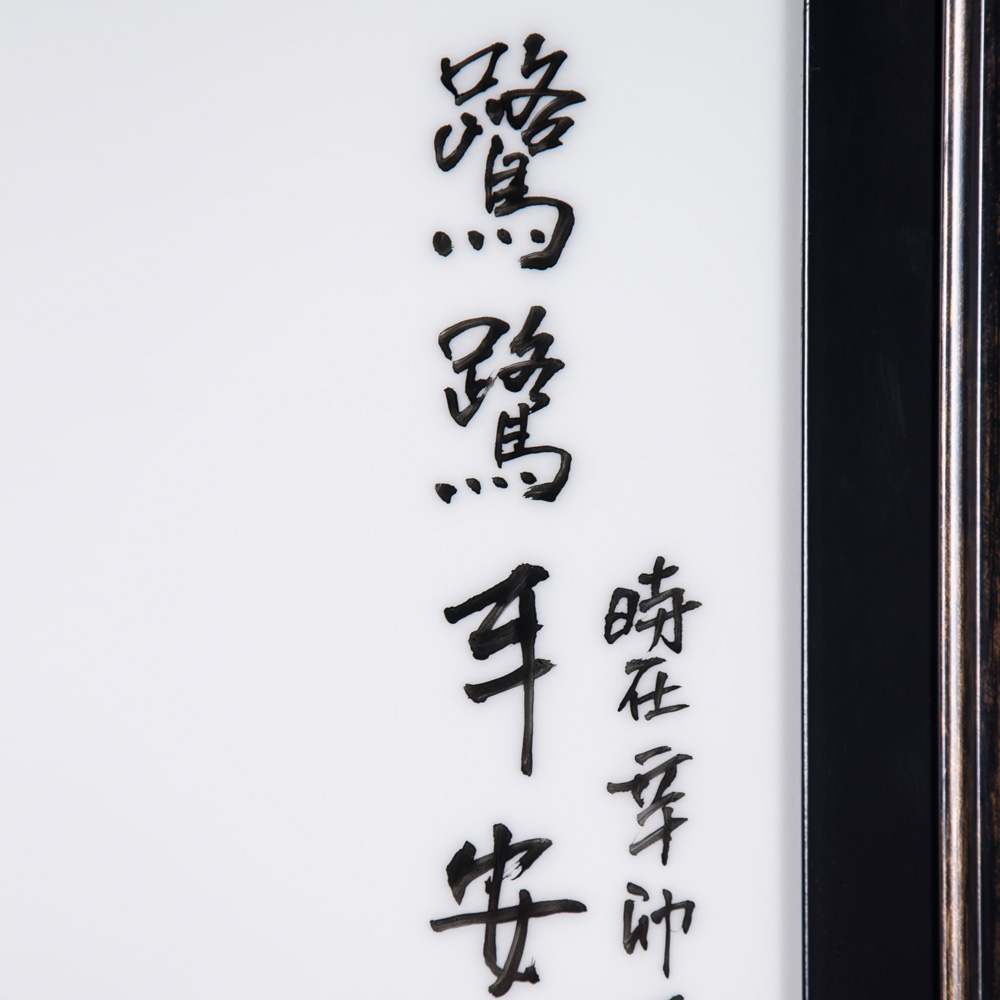 時在辛卯
鷺鷺平安